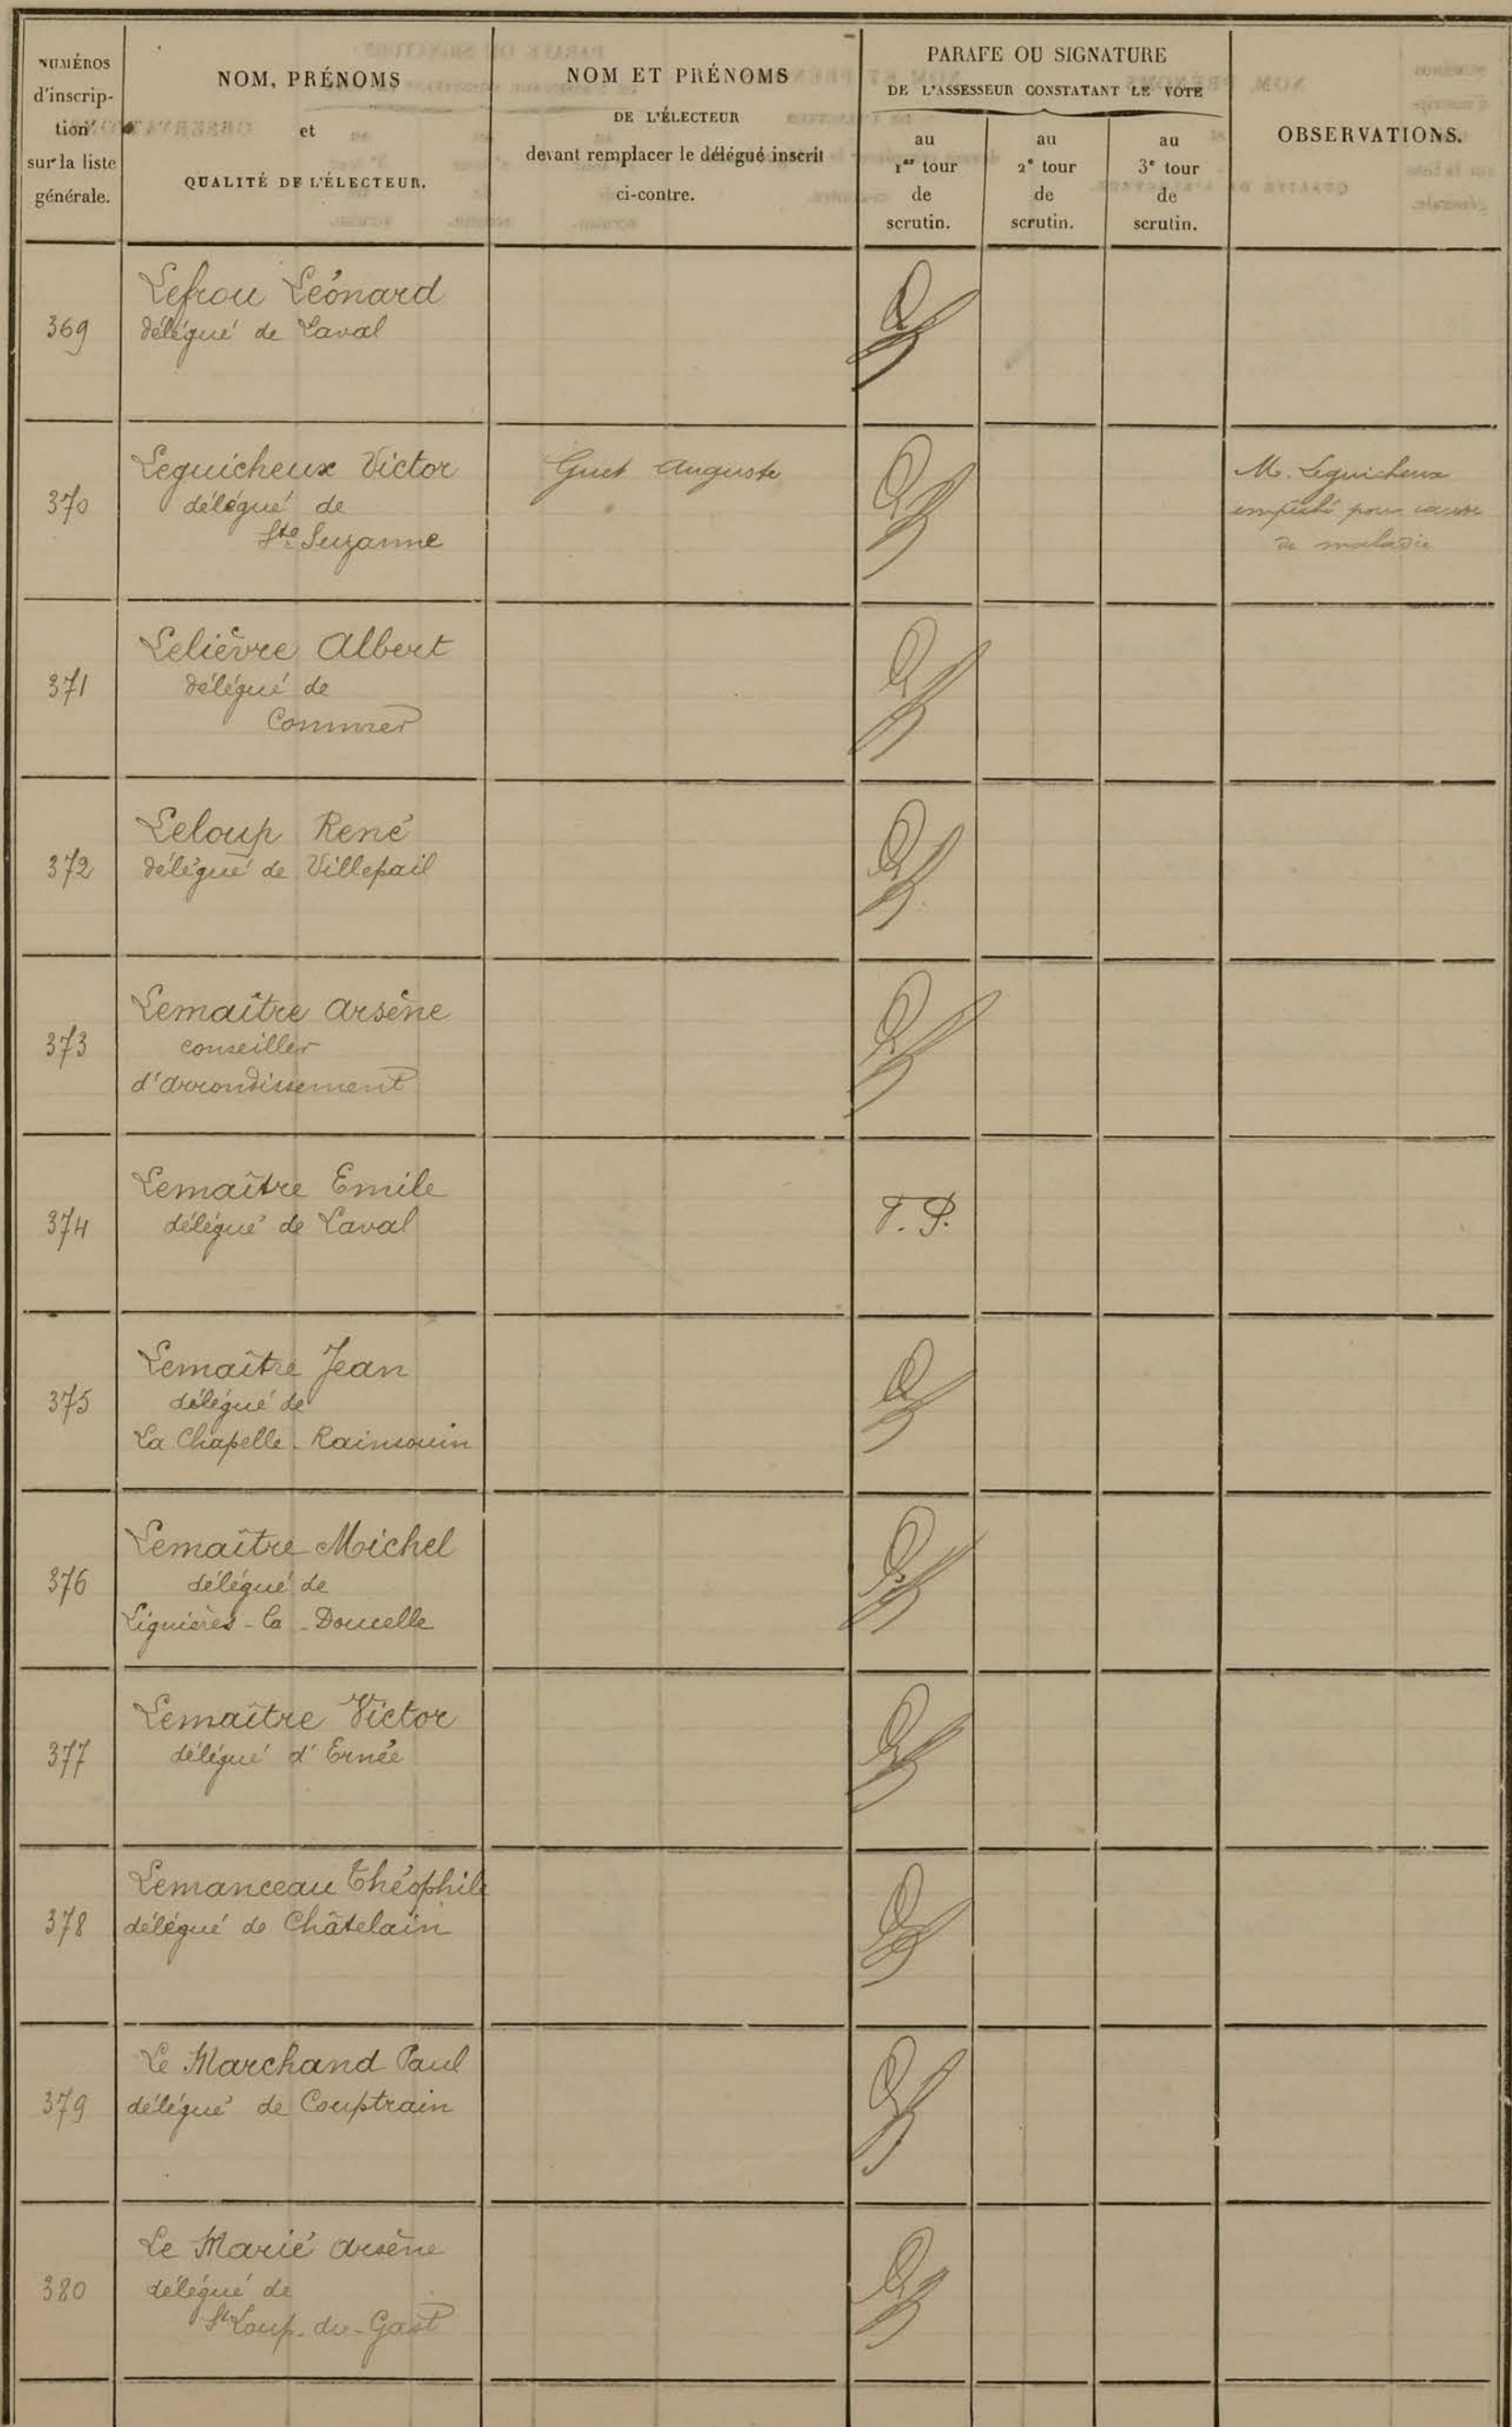 NUMÉROS
d'inscrip-
tion
sur la liste
générale.
NOM, PRÉNOMS
et
QUALITÉ DE L'ÉLECTEUR.
NOM ET PRÉNOMS
DE L'ÉLECTEUR
devant remplacer le délégué inscrit
ci-contre.
PARAFE OU SIGNATURE
DE L'ASSESSEUR CONSTATANT LE VOTE
au
1er tour
de
scrutin.
au
2e tour
de
scrutin.
au
3e tour
de
scrutin.
OBSERVATIONS.
369
Lefrou Léonard
délégué de Laval
370
Leguicheux Victor
délégué de
Ste Suzanne
Guet Auguste
M. Leguicheux
empêché pour cause
de maladie
371
Lelièvre Albert
délégué de
Commer
372
Leloup René
délégué de Villepail
373
Lemaître Arsène
conseiller
d'arrondissement
374
Lemaître Emile
délégué de Laval
375
Lemaître Jean
délégué de
La Chapelle-Rainsouin
376
Lemaître Michel
délégué de
Lignières-la-Doucelle
377
Lemaître Victor
délégué d'Ernée
378
Lemanceau Théophile
délégué de Châtelain
379
Le Marchand Paul
délégué de Couptrain
380
Le Marié Arsène
délégué de
St Loup-du-Gast